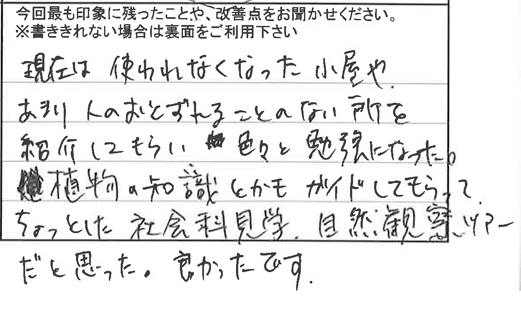 今回最も印象に残ったことや、改善点をお聞かせください。
※書ききれない場合は裏面をご利用下さい
現在は 使われなくなった 小屋や、
あまり 人のおとずれることのない 所を
紹介してもらい 色々と 勉強になった。
植物の知識とかも ガイドしてもらって、
ちょっとした 社会科見学、自然観察ツアー
だと思った。良かったです。